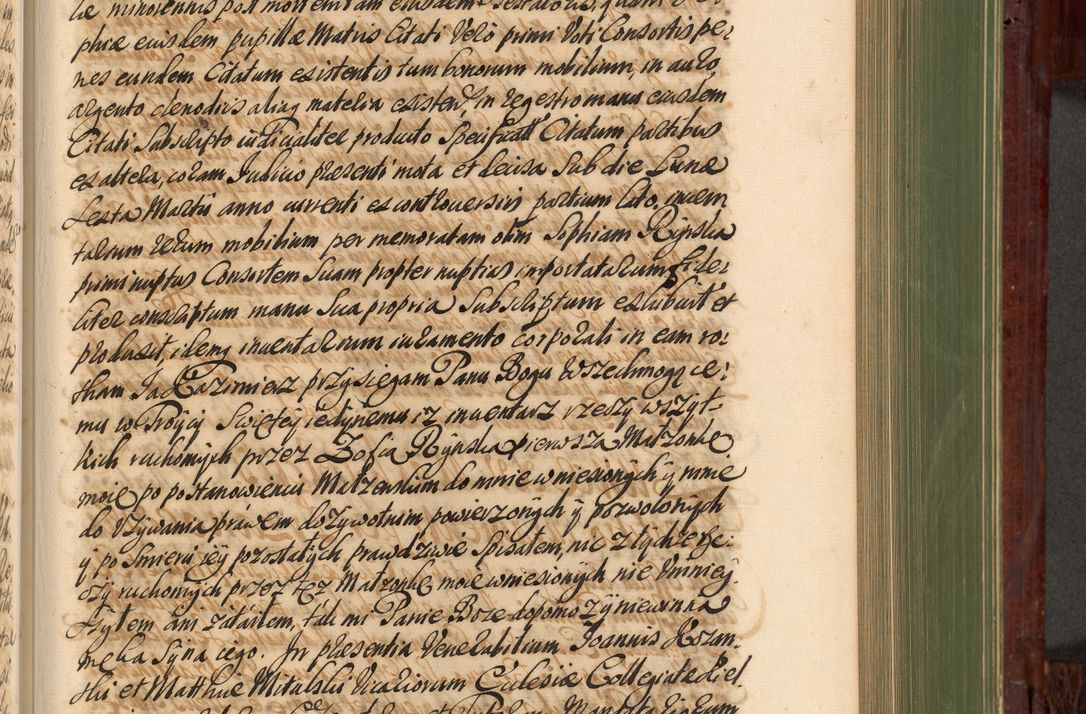 læ minorennis post mortem tam eiusdem Testatoris, quam
phiæ eiusdem pupillæ Matris Citati Vero primi Voti Consortis pe:
nes eundem Citatum existentis tum bonorum mobilium, in auro
argento clenodiis aliaq materia existen, in regestro manu eiusdem
Citati Subscripto iudicialiter producto Specificat Citatum partibus
ex altera, coram Iudicio præsenti mota et decisa Sub die Lunæ
Sexta Martii anno currenti ex controversiis partium lato, inven
tarium rerum mobilium per memoratam olim Sophiam Rijnska
primi nuptus Consortem Suam propter nuptias importatarum fide:
liter conscriptum manu Sua propria Subscriptum exhibuit et
produxit, idemq inventarium iuramento corporali in eam ro:
tham Ja Kazimierz przysięgam Panu Bogu Wszechmogące:
mu w Troijcij Swiętej jedijnemu iz inwentarz rzeszy wszyt-
kich ruchomijch przez Zofią Rijnską pierwszą Małzonkę
moię po postanowieniu Małzenskim do mnie wniesionijch ij mnie
do Uzijwania prawem dozijwotnim powierzonijch ij pozwolonijch
ij po Smierci ieij pozostałijch prawdziwie Spisałem, nic z tijch rze:
czij ruchomijch przez tęz Małzonkę moię wniesionijch nie Umnieij
szijłem ani zataiłem, tak mi Panie Boze dopomoz ij niewinna
męka Sijna iego. In præsentia Venerabilium Joannis
et Matthiæ Mitalski Vicariorum Ecclesiæ Collegiatæ